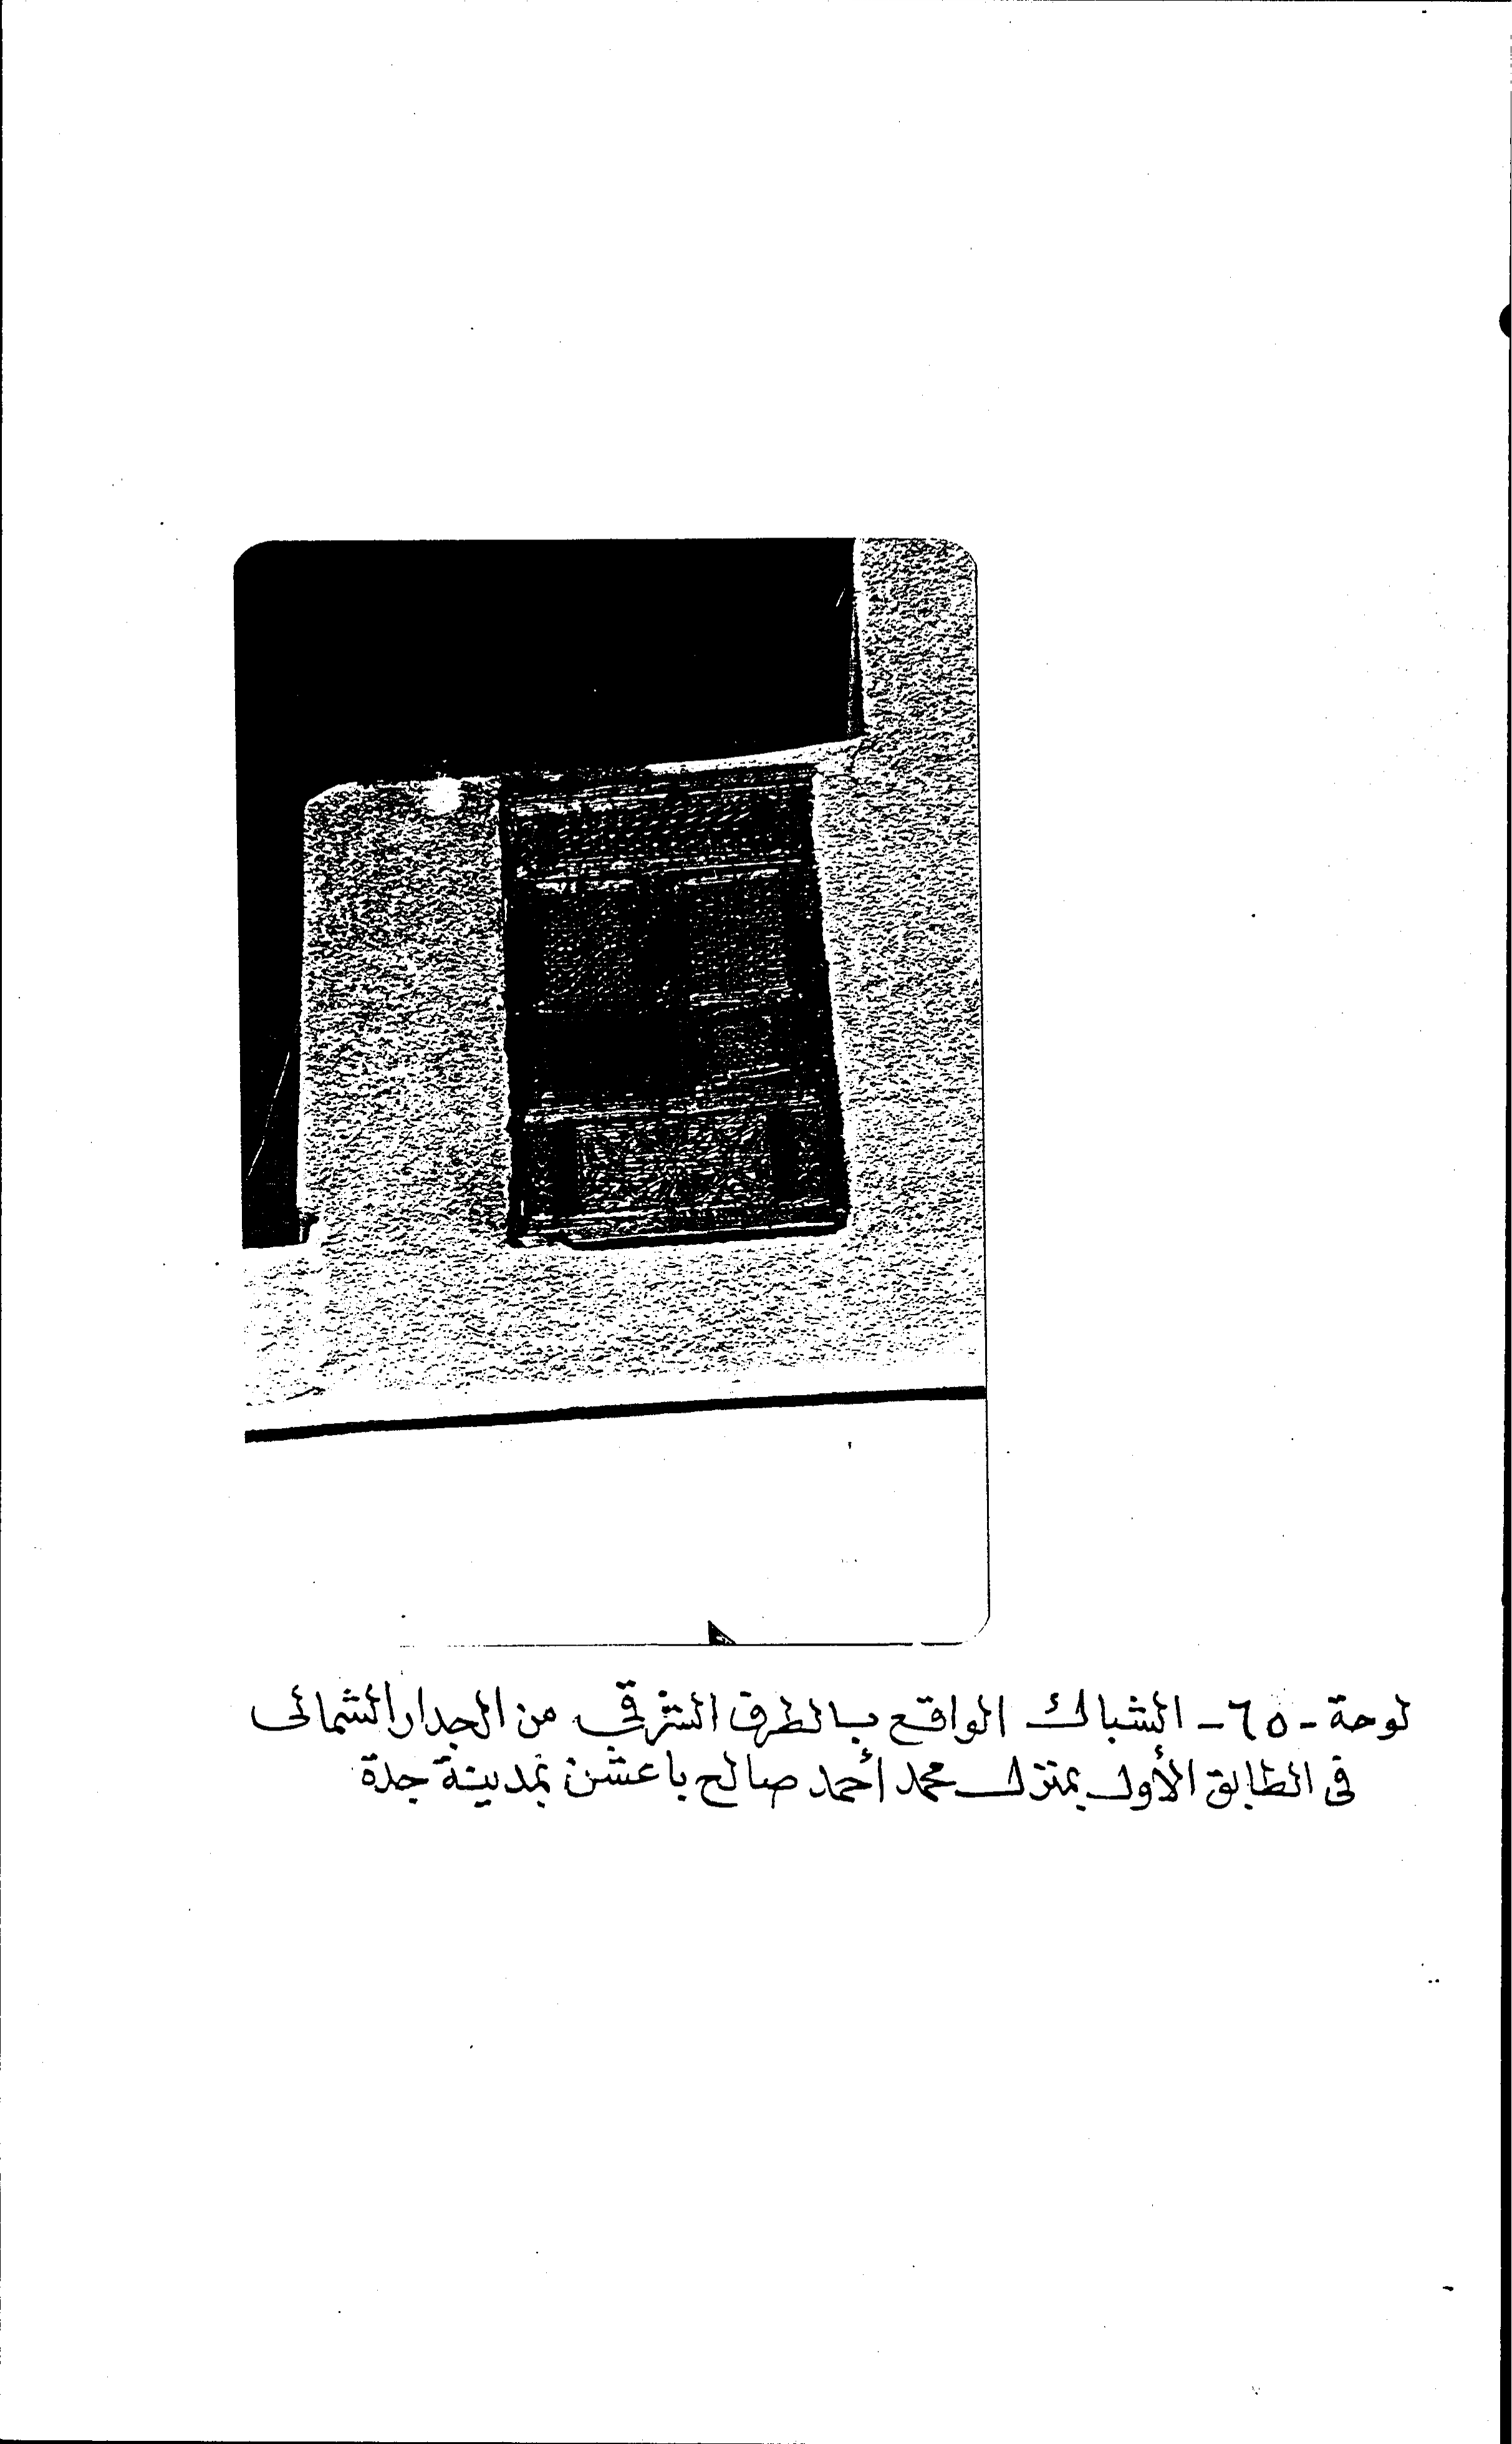 لوحة - ٦٥ - الشباك الواقع بالطرف الشرقي من الجدار الشمالى
فى الطابق الأول بمنزل محمد أحمد صالح باعشن بمدينة جدة